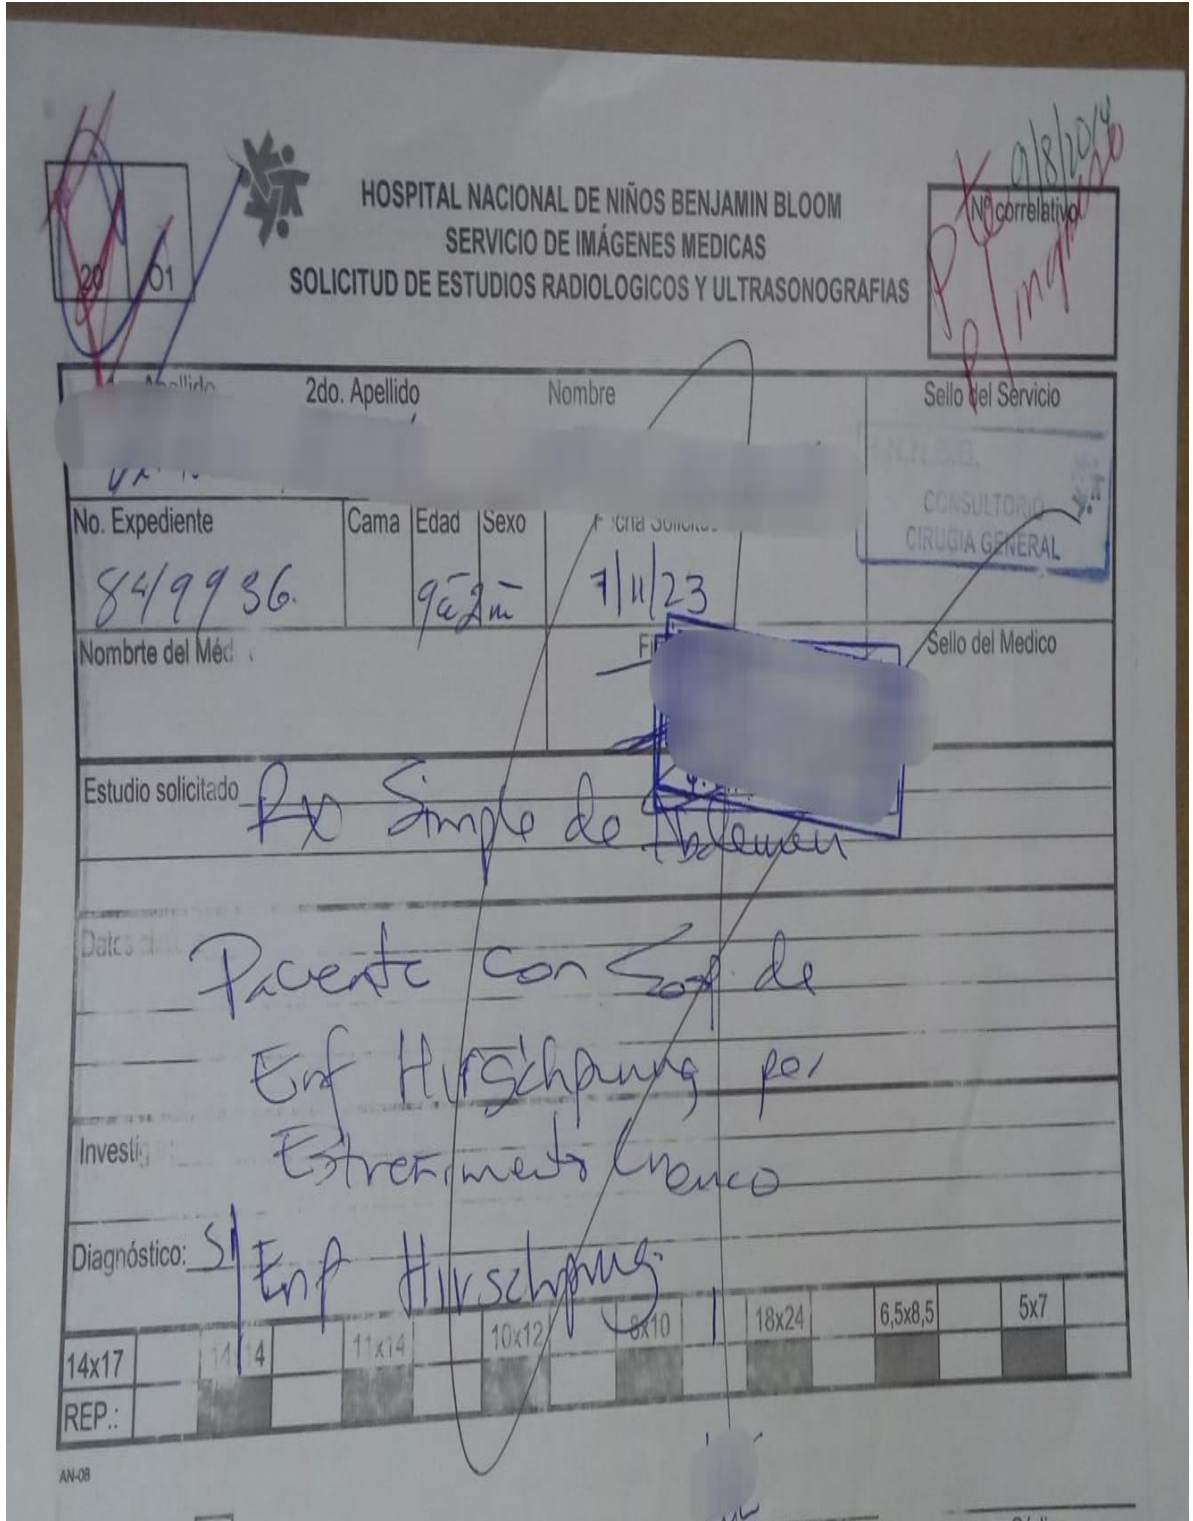 HOSPITAL NACIONAL DE NIÑOS BENJAMIN BLOOM
SERVICIO DE IMÁGENES MEDICAS
SOLICITUD DE ESTUDIOS RADIOLOGICOS Y ULTRASONOGRAFIAS
9/8/2014
Nº correlativo
20 01
Apellido 2do. Apellido Nombre Sello del Servicio
H.N.N.B.B.
CONSULTORIO
CIRUGIA GENERAL
No. Expediente Cama Edad Sexo
84/9936. 9a2m 7/11/23
Nombrte del Sello del Medico
Estudio solicitado Rx Simple de Abdomen
Paciente con Sosp. de
Enf Hirschprung por
Estreñimiento Cronico
Diagnóstico: S/ Enf Hirschprung.
14x17 14x14 11x14 10x12 8x10 18x24 6,5x8,5 5x7
REP.:
AN-08